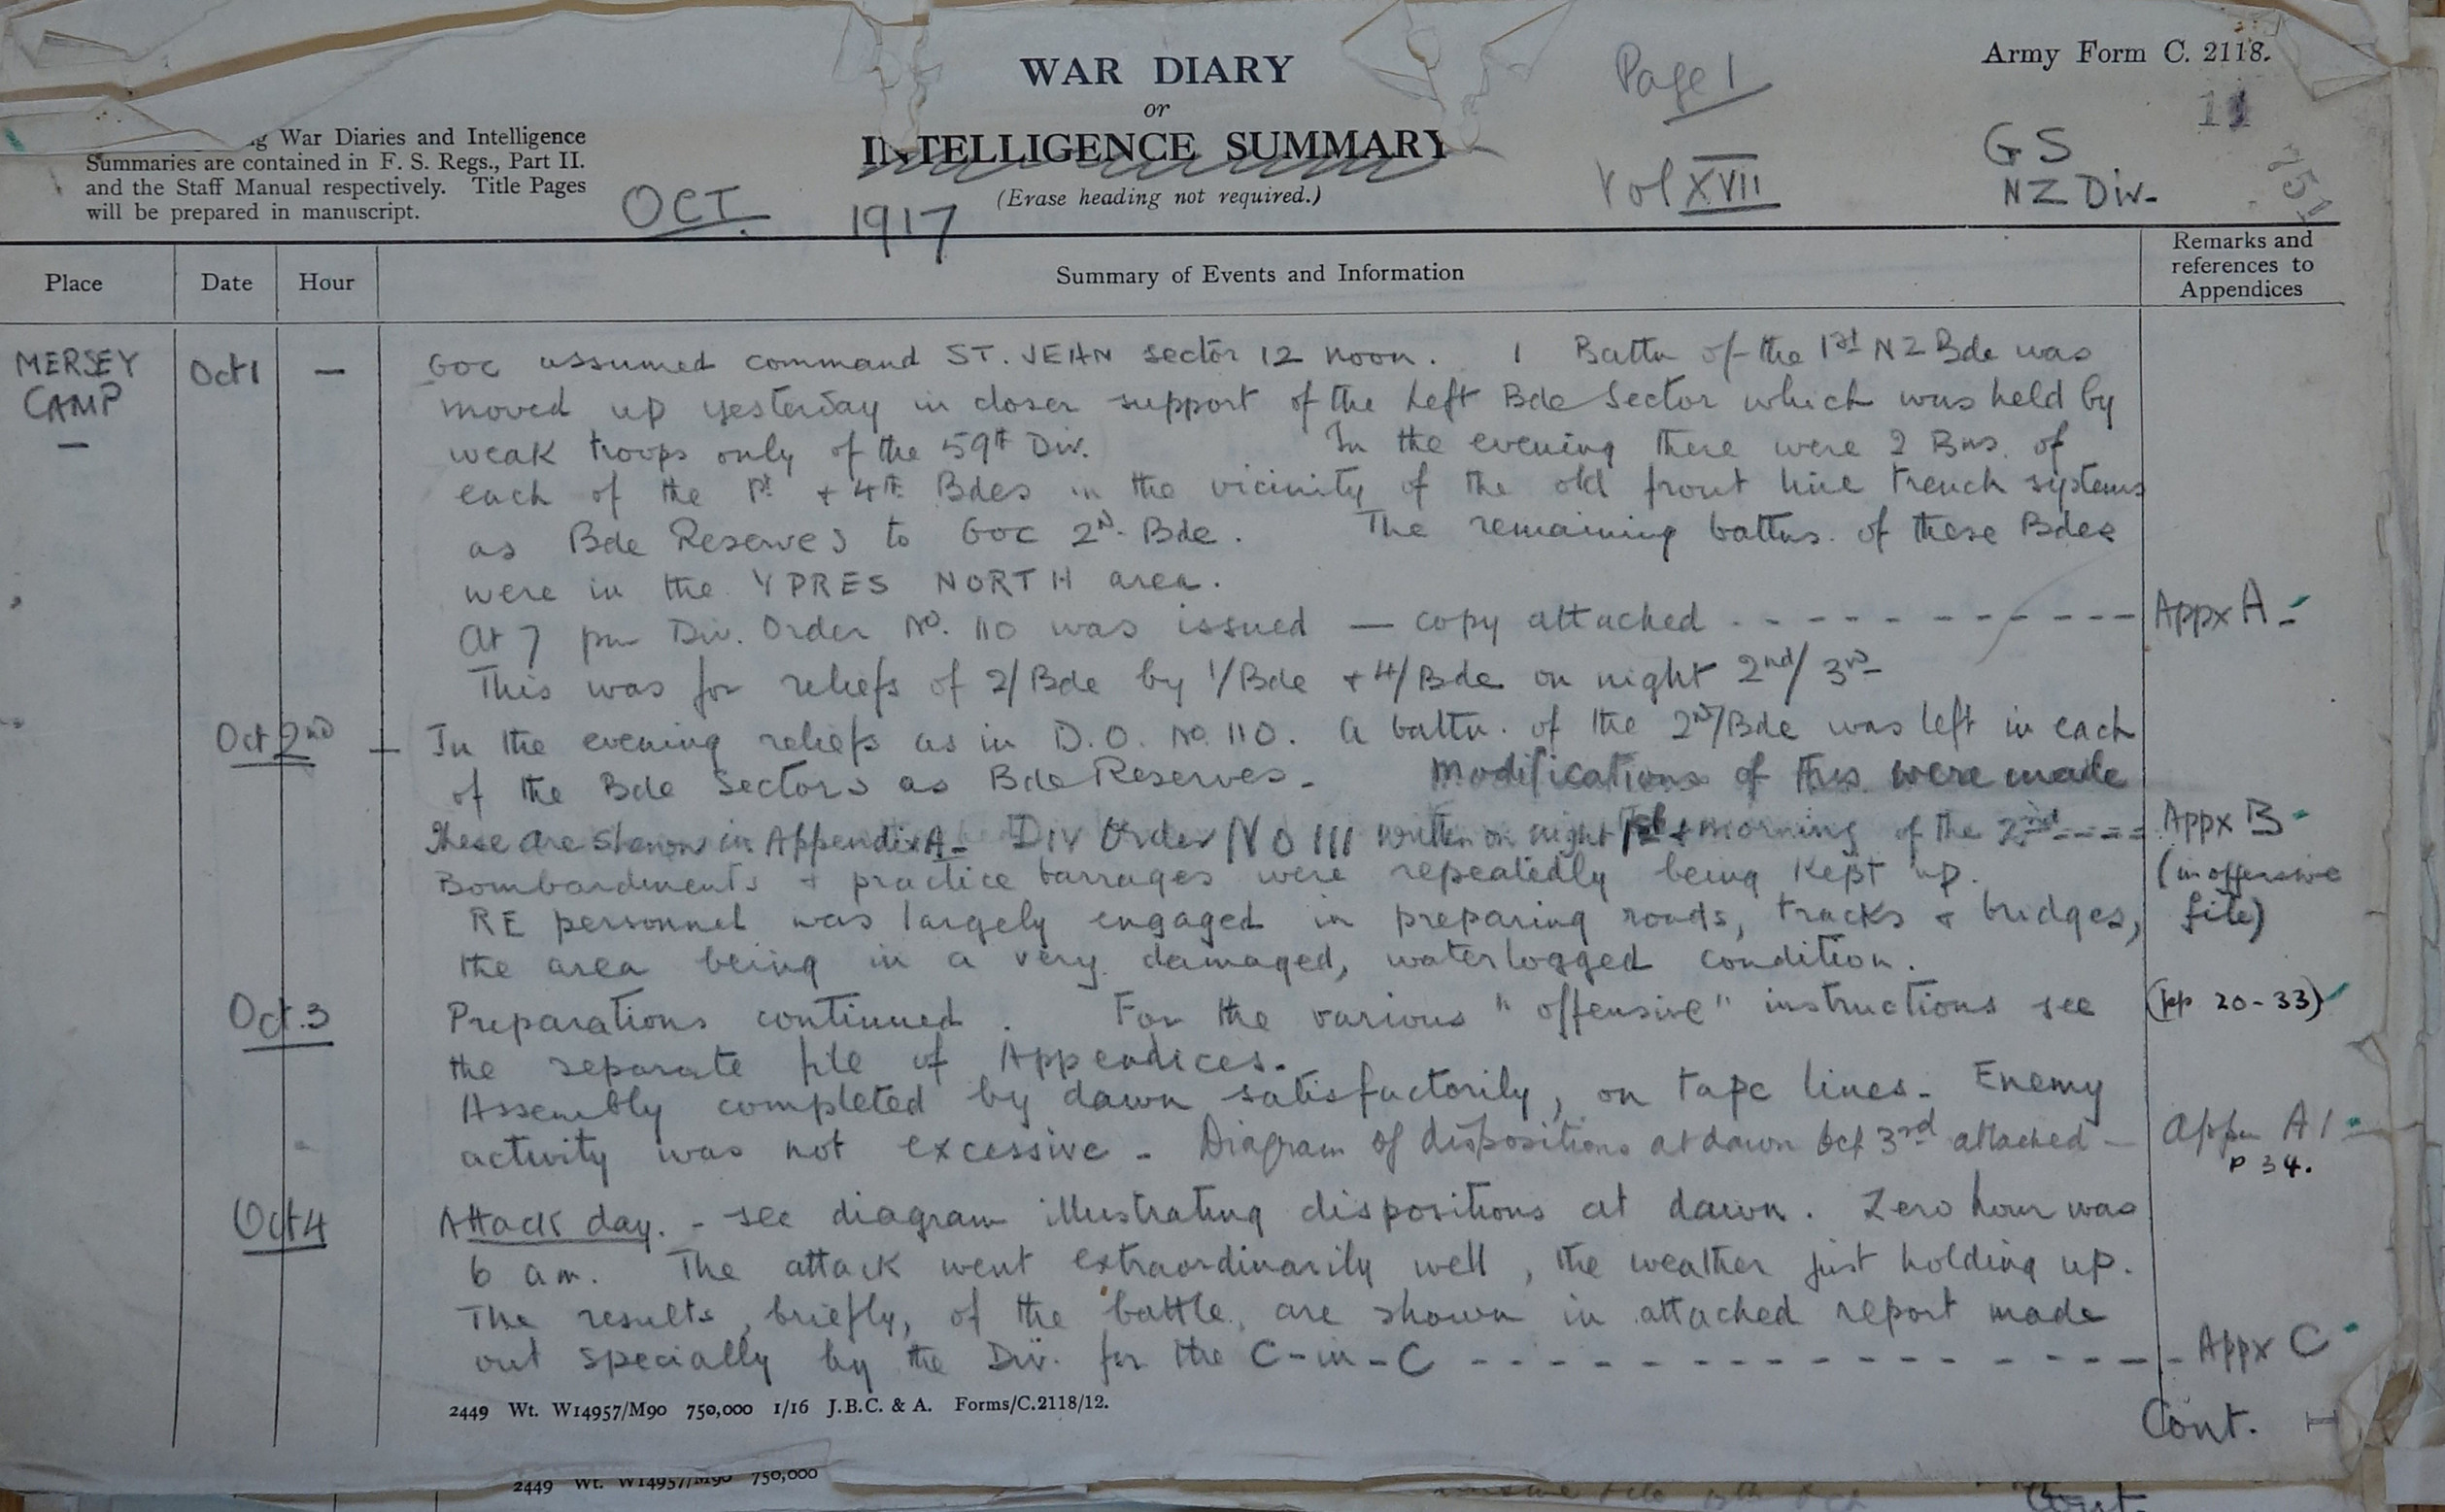 Army Form C. 2118.
WAR DIARY
or
INTELLIGENCE SUMMARY
(Erase heading not required.)
Page 1
11
g War Diaries and Intelligence
Summaries are contained in F. S. Regs., Part II.
and the Staff Manual respectively. Title Pages
will be prepared in manuscript.
OCT.
1917
Vol XVII
GS
NZ Div.
751
Place
Date
Hour
Summary of Events and Information
Remarks and
references to
Appendices
MERSEY
CAMP
—
Oct 1
—
GOC assumed command ST. JEAN sector 12 noon. 1 Battn of the 1st NZ Bde was
moved up yesterday in closer support of the Left Bde Sector which was held by
weak troops only of the 59th Div. In the evening there were 2 Bns. of
each of the 1st + 4th Bdes in the vicinity of the old front line trench systems
as Bde Reserves to GOC 2nd Bde. The remaining battns. of these Bdes
were in the YPRES NORTH area.
At 7 pm Div. Order No. 110 was issued — copy attached - - - - - - - - - - - Appx A
This was for reliefs of 2/Bde by 1/Bde + 4/Bde on night 2nd/3rd
Oct 2nd — In the evening reliefs as in D.O. No. 110. A battn. of the 2nd/Bde was left in each
of the Bde Sectors as Bde Reserves. Modifications of this were made
These are shown in Appendix A - Div Order No 111 written on night 1st + morning of the 2nd - - - - Appx B
Bombardments + practice barrages were repeatedly being kept up. (in offensive
RE personnel was largely engaged in preparing roads, tracks + bridges, file)
the area being in a very damaged, waterlogged condition.
Oct. 3 Preparations continued. For the various "offensive" instructions see (pp 20-33)
the separate file of Appendices.
Assembly completed by dawn satisfactorily, on tape lines. Enemy
activity was not excessive - Diagram of dispositions at dawn Oct 3rd attached — Appx A1
p 34.
Oct 4 Attack day. - see diagram illustrating dispositions at dawn. Zero hour was
6 am. The attack went extraordinarily well, the weather just holding up.
The results, briefly, of the battle, are shown in attached report made
out specially by the Div. for the C-in-C - - - - - - - - - - - - - - Appx C
2449 Wt. W14957/M90 750,000 1/16 J.B.C. & A. Forms/C.2118/12.
Cont.
2449 Wt. W14957/M90 750,000